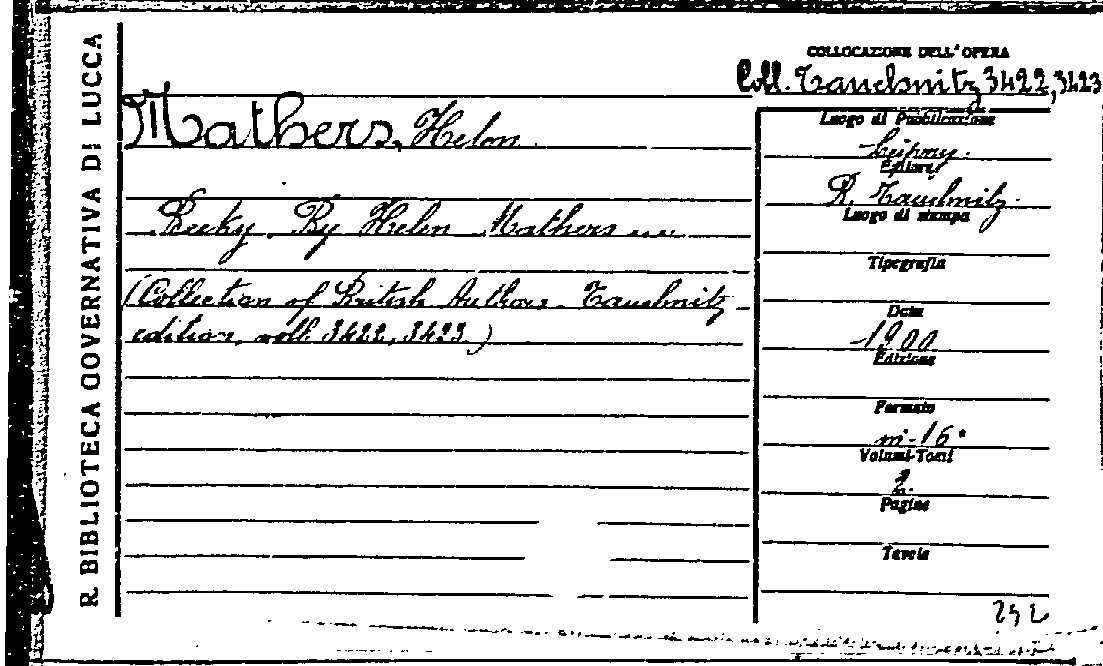 R. BIBLIOTECA GOVERNATIVA DI LUCCA
COLLOCAZIONE DELL'OPERA
Coll. Tauchnitz 3422, 3423
Mathers, Helen
Becky. By Helen Mathers ....
(Collection of British Authors. Tauchnitz
edition, voll. 3422, 3423.)
Luogo di Pubblicazione
Leipzig.
Editore
B. Tauchnitz.
Luogo di stampa
Tipografia
Data
1900
Edizione
Formato
in-16°
Volumi-Tomi
2.
Pagine
Tavole